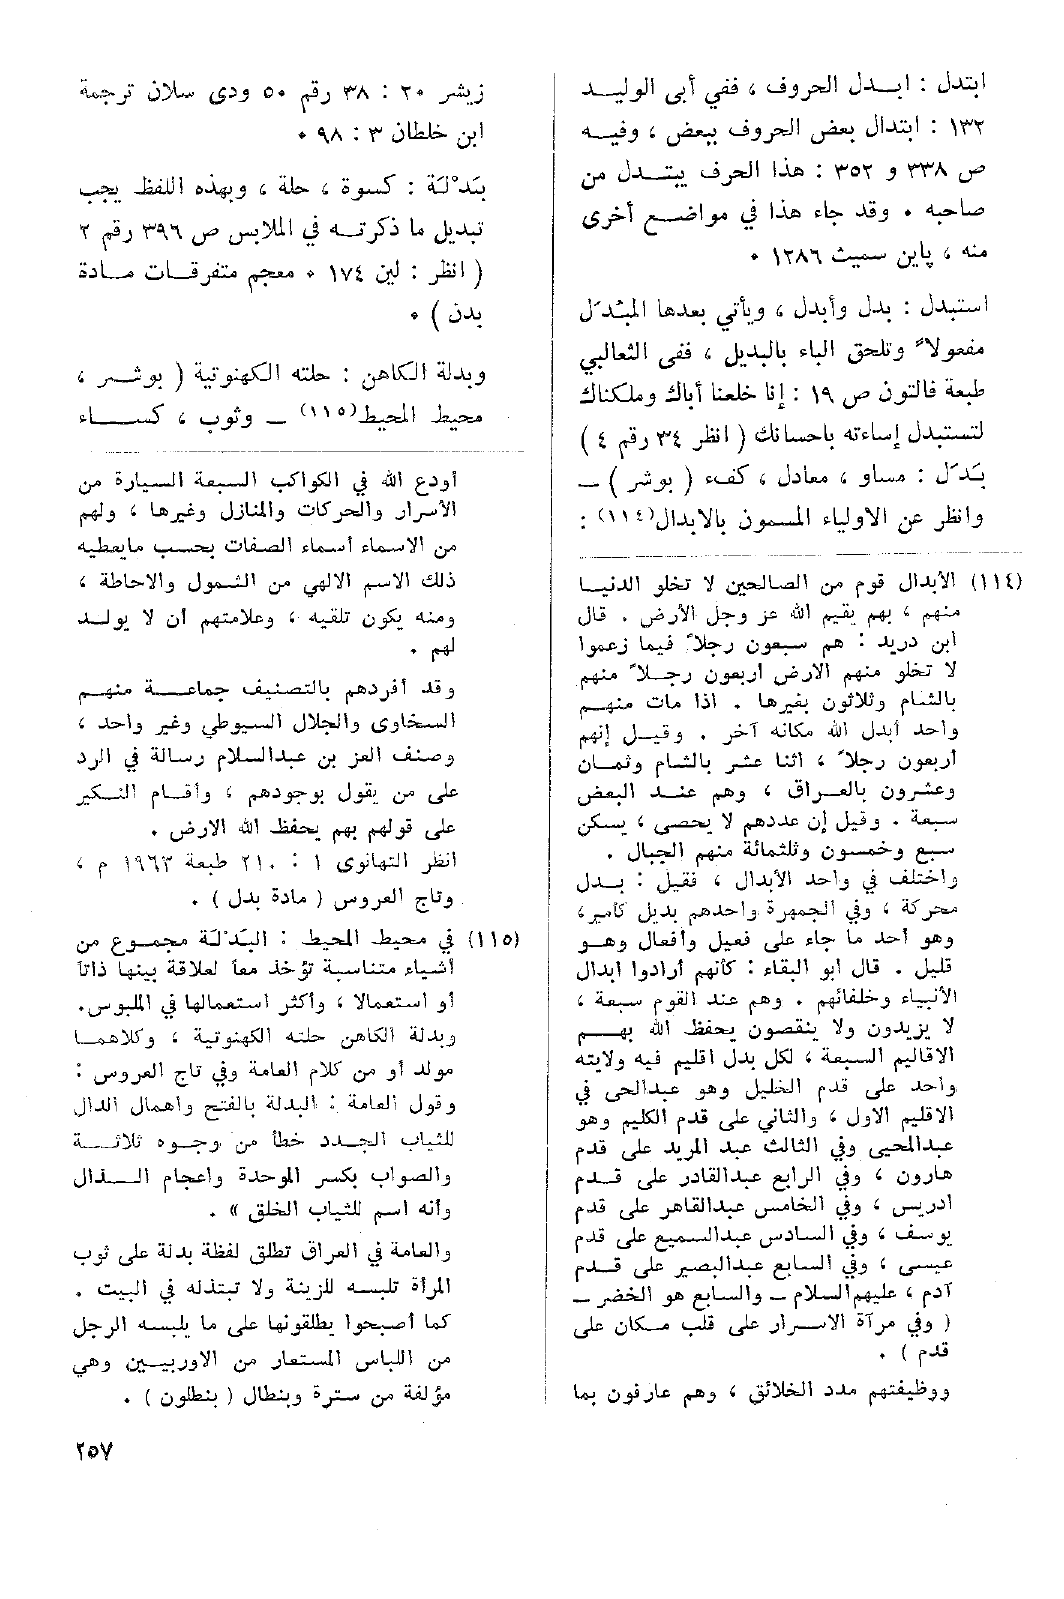 ابتدل : ابـدل الحروف ، ففي أبى الوليـد
١٣٢ : ابتدال بعض الحروف ببعض ، وفيـه
ص ٣٣٨ و ٣٥٢ : هذا الحرف يبتـدل من
صاحبه ٠ وقد جاء هذا في مواضـع أخرى
منه ، پاين سميث ١٢٨٦ ٠
استبدل : بدل وأبدل ، ويأتي بعدها المبْدَل
مفعولاً وتلحق الباء بالبديل ، ففى الثعالبي
طبعة فالتون ص ١٩ : إنا خلعنا أباك وملكناك
لتستبدل إساءته باحسانك ( انظر ٣٤ رقم ٤ )
بَدَل : مساو ، معادل ، كفء ( بوشر ) ــ
وانظر عن الاولياء المسمون بالابدال(١١٤) :
(١١٤) الأبدال قوم من الصالحين لا تخلو الدنيـا
منهم ، بهم يقيم الله عز وجل الأرض . قال
ابن دريد : هم سبعون رجلاً فيما زعموا
لا تخلو منهم الارض أربعون رجـلاً منهم
بالشام وثلاثون بغيرها . اذا مات منهـم
واحد أبدل الله مكانه آخر . وقيـل إنهم
أربعون رجلاً ، اثنا عشر بالشام وثمـان
وعشرون بالعـراق ، وهم عنـد البعض
سبعة . وقيل إن عددهم لا يحصى ، يسكن
سبع وخمسون وثلثمائة منهم الجبال .
واختلف في واحد الأبدال ، فقيل : بـدل
محركة ، وفي الجمهرة واحدهم بديل كأمير،
وهو أحد ما جاء على فعيل وأفعال وهـو
قليل . قال ابو البقاء : كأنهم أرادوا ابدال
الأنبياء وخلفائهم . وهم عند القوم سبعة ،
لا يزيدون ولا ينقصون يحفظ الله بهـم
الاقاليم السبعة ، لكل بدل اقليم فيه ولايته
واحد على قدم الخليل وهو عبدالحى في
الاقليم الاول ، والثاني على قدم الكليم وهو
عبدالمحيى وفي الثالث عبد المريد على قدم
هارون ، وفي الرابع عبدالقادر على قـدم
ادريس ، وفي الخامس عبدالقاهر على قدم
يوسف ، وفي السادس عبدالسميع على قدم
عيسى ، وفي السابع عبدالبصير على قـدم
آدم ، عليهم السلام ــ والسابع هو الخضر ــ
( وفي مرآة الاسـرار على قلب مـكان على
قدم ) .
ووظيفتهم مدد الخلائق ، وهم عارفون بما
زيشر ٢٠ : ٣٨ رقم ٥٠ ودى سلان ترجمة
ابن خلطان ٣ : ٩٨ ٠
بَدْلَة : كسوة ، حلة ، وبهذه اللفظ يجب
تبديل ما ذكرتـه في الملابس ص ٣٩٦ رقم ٢
( انظر : لين ١٧٤ ٠ معجم متفرقـات مـادة
بدن ) ٠
وبدلة الكاهن : حلته الكهنوتية ( بوشـر ،
محيط المحيط(١١٥) ــ وثوب ، كسـاء
أودع الله في الكواكب السبعة السيارة من
الأسرار والحركات والمنازل وغيرها ، ولهم
من الاسماء أسماء الصفات بحسب مايعطيه
ذلك الاسم الالهي من الشمول والاحاطة ،
ومنه يكون تلقيه ، وعلامتهم أن لا يولـد
لهم .
وقد أفردهم بالتصنيف جماعـة منهـم
السخاوى والجلال السيوطي وغير واحد ،
وصنف العز بن عبدالسلام رسالة في الرد
على من يقول بوجودهم ، وأقـام النـكير
على قولهم بهم يحفظ الله الارض .
انظر التهانوى ١ : ٢١٠ طبعة ١٩٦٣ م ،
وتاج العروس ( مادة بدل ) .
(١١٥) في محيط المحيط : البَدْلَة مجمـوع من
أشياء متناسبة تؤخذ معاً لعلاقة بينها ذاتاً
أو استعمالا ، وأكثر استعمالها في الملبوس.
وبدلة الكاهن حلته الكهنوتية ، وكلاهمـا
مولد أو من كلام العامة وفي تاج العروس :
وقول العامة : البدلة بالفتح واهمال الدال
للثياب الجدد خطأ من وجـوه ثلاثـة
والصواب بكسر الموحدة واعجام الـذال
وأنه اسم للثياب الخلق » .
والعامة في العراق تطلق لفظة بدلة على ثوب
المرأة تلبسه للزينة ولا تبتذله في البيت .
كما أصبحوا يطلقونها على ما يلبسه الرجل
من اللباس المستعار من الاوربيـين وهي
مؤلفة من سترة وبنطال ( بنطلون ) .
٢٥٧